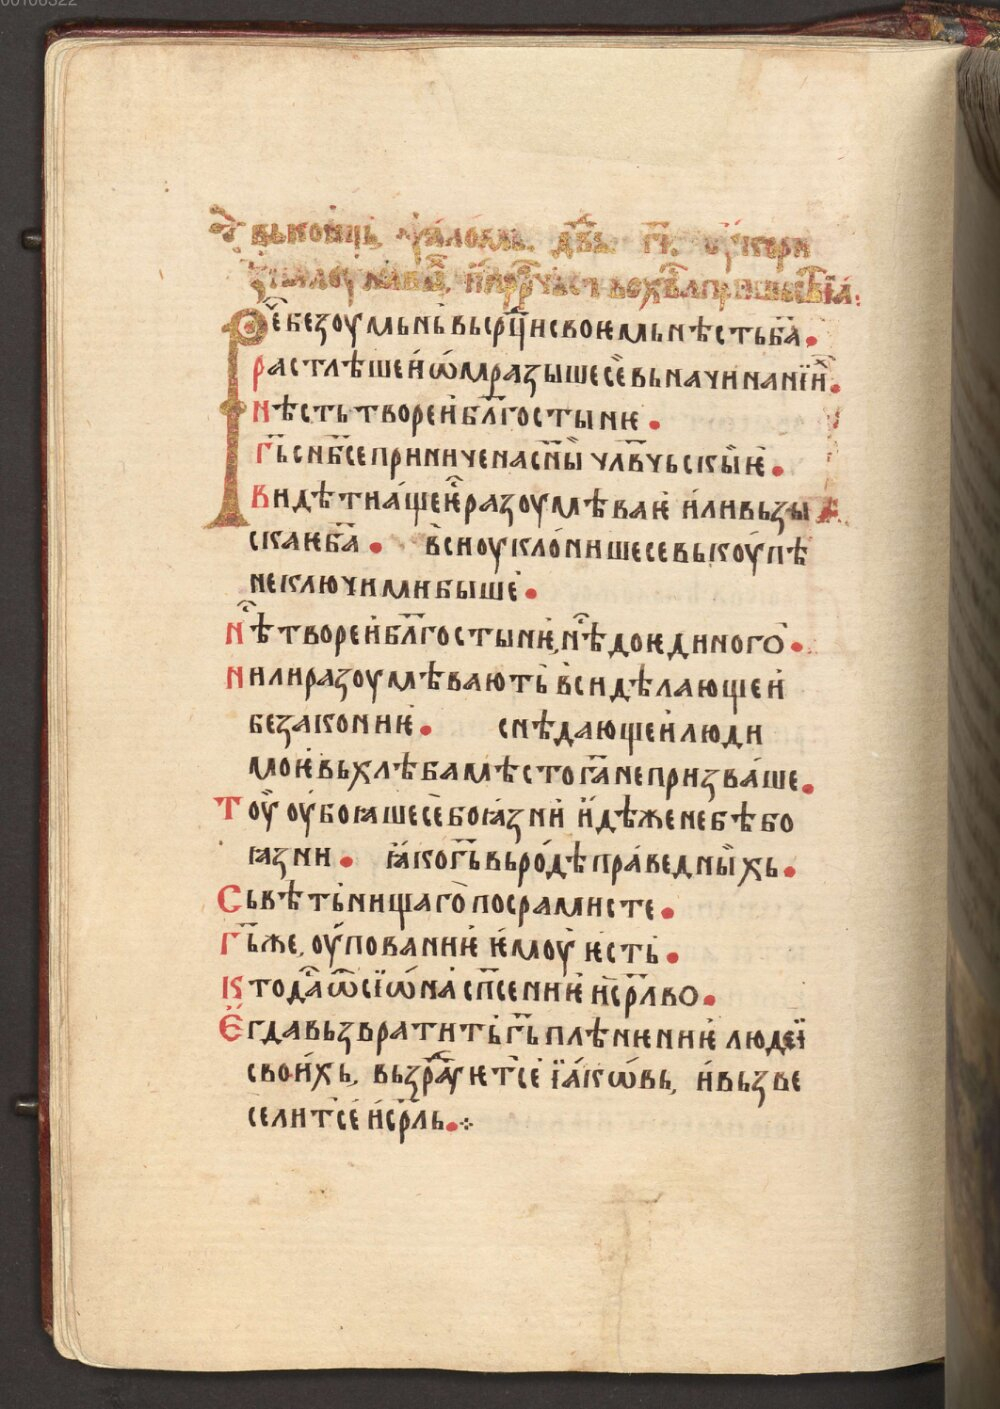 вьконць ѱаломь. дв҃ь. гі҃. оукори
Р҇ебезоумьньвьсрⷣцисвоѥмьнѣстьба҃.
растлѣшеиѡмразышесевьначинанїиⷯ.
нѣстьтвореибл҃гостынѥ.
гь҃снб҃сеприничѐнасн҃ы чл҃вчьскыѥ.
видѣтиащеѥⷭ҇разоумѣваѥ иливьзы
скаѥба҃. всиоуклонишесевькоупѣ
неключимибыше.
нⷭ҇ѣтвореибл҃гостынѥ, нⷭ҇ѣдоѥдиного.
нилиразоумѣвають всидѣлающеи
безакониѥ. снѣдающеилюди
моѥвьхлѣбамѣстога҃непризваше.
Тоу оубоꙗшесебоꙗзни идѣженебѣбо
ꙗзни. ꙗкогь҃вьродѣправедныхь.
Сьвѣтьнищагопосрамисте.
Гь҃же, оупованиѥ ѥмоу ѥсть.
Ктодаⷭ҇ѿсїѡнаспⷭ҇сениѥ ис҃рлво.
Егдавьзвратитьгь҃плѣнѥниѥ людеї
своихь, вьзраⷣуѥтсе їакѡвь, ивьзве
селитсе ис҃рль.